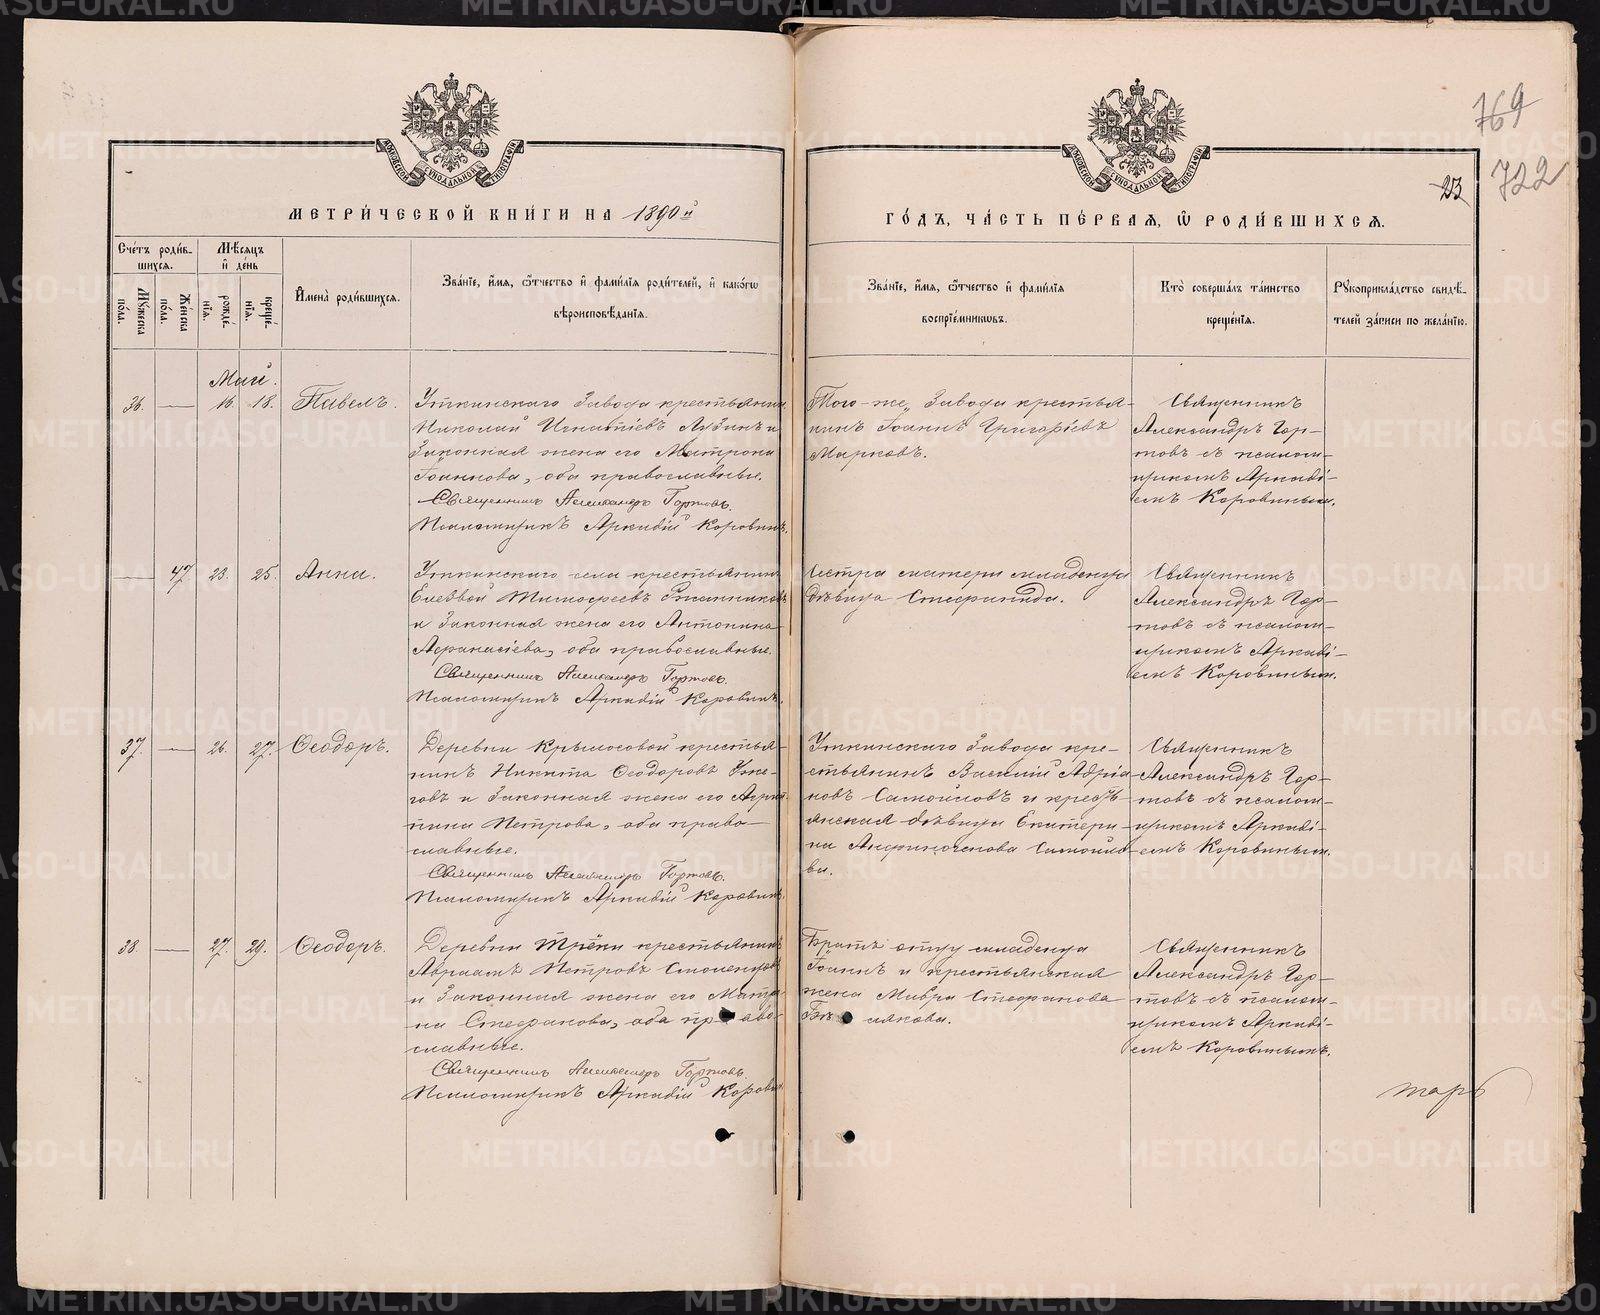 МЕТРИ́ЧЕСКОЙ КНИ́ГИ НА 1890й
ГО́ДЪ, ЧА́СТЬ ПЕ́РВАЯ, Ѽ РОДИ́ВШИХСѦ.
769
722
23
Сче́тъ роди́в-
шихся.
Мѣ́сяцъ
и҆ де́нь
Мꙋжеска
по́ла.
Же́нска
по́ла.
рожде́-
нїя.
креще́-
нїя.
И҆мена̀ роди́вшихся.
Зва́нїе, и҆́мя, ѻ҆́тчество и҆ фами́лїя роди́телей, и҆ како́гѡ
вѣроисповѣ́данїя.
Зва́нїе, и҆́мя, ѻ҆́тчество и҆ фами́лїя
воспрїе́мникѡвъ.
Кто̀ соверша́лъ та́инство
креще́нїя.
Рꙋкоприкла́дство свидѣ́-
телей за́писи по жела́нїю.
Май.
36. — 16. 18. Павелъ.
Уткинскаго Завода крестьянинъ
Николай Игнатіевъ Лузинъ и
Законная жена его Матрона
Іоаннова, оба православные.
Священникъ Александръ Гортовъ.
Псаломщикъ Аркадій Коровинъ.
Того-же Завода крестья-
нинъ Іоаннъ Григоріевъ
Марковъ.
Священникъ
Александръ Гор-
товъ съ псалом-
щикомъ Аркаді-
емъ Коровинымъ.
— 47 23. 25. Анна.
Уткинскаго села крестьянинъ
Елевой Тимофеевъ
и Законная жена его Антонина
Афанасіева, оба православные.
Священникъ Александръ Гортовъ.
Псаломщикъ Аркадій Коровинъ.
Сестра матери младенца
дѣвица Стефанида.
Священникъ
Александръ Гор-
товъ съ псалом-
щикомъ Аркаді-
емъ Коровинымъ.
37. — 26. 27. Ѳеодоръ.
Деревни Крылосовой крестья-
нинъ Никита Ѳеодоровъ Уже-
говъ и Законная жена его Агрип-
пина Петрова, оба право-
славные.
Священникъ Александръ Гортовъ.
Псаломщикъ Аркадій Коровинъ.
Уткинскаго Завода кре-
стьянинъ Василій Адріа-
новъ Самойловъ и кресть-
янская дѣвица Екатери-
на Андрониченова Самойло-
ва.
Священникъ
Александръ Гор-
товъ съ псалом-
щикомъ Аркаді-
емъ Коровинымъ.
38. — 27. 29. Ѳеодоръ.
Деревни Трёки крестьянинъ
Авраамъ Петровъ Смоленцевъ
и Законная жена его Матро-
на Стефанова, оба право-
славные.
Священникъ Александръ Гортовъ.
Псаломщикъ Аркадій Коровинъ
Братъ отцу младенца
Іоаннъ и крестьянская
жена Мавра Стефанова
Священникъ
Александръ Гор-
товъ съ псалом-
щикомъ Аркаді-
емъ Коровинымъ.
тарь
METRIKI.GASO-URAL.RU